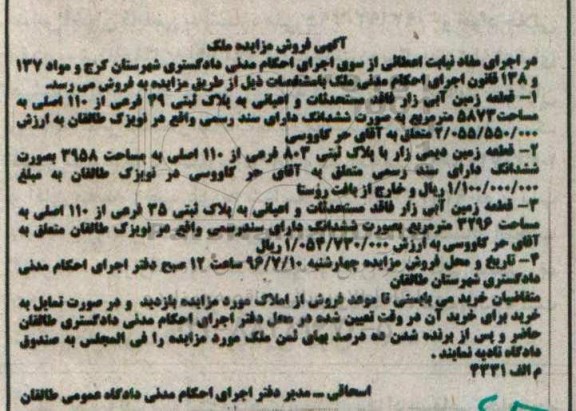 آگهی فروش مزایده ملک
در اجرای مفاد نیابت اعطائی از سوی اجرای احکام مدنی دادگستری شهرستان کرج و مواد ۱۳۷
و ۱۳۸ قانون اجرای احکام مدنی ملک بامشخصات ذیل از طریق مزایده به فروش می رسد.
۱- قطعه زمین آبی زار فاقد مستحدثات و اعیانی به پلاک ثبتی ۴۹ فرعی از ۱۱۰ اصلی به
مساحت ۵۸۷۳ مترمربع به صورت ششدانگ دارای سند رسمی واقع در نویزک طالقان به ارزش
۲/۰۵۵/۵۵۰/۰۰۰ متعلق به آقای حر کاووسی
۲- قطعه زمین دیمی زار با پلاک ثبتی ۸۰۳ فرعی از ۱۱۰ اصلی به مساحت ۳۹۵۸ بصورت
ششدانگ دارای سند رسمی متعلق به آقای حر کاووسی در نویزک طالقان به مبلغ
۱/۱۰۰/۰۰۰/۰۰۰ ریال و خارج از بافت روستا
۳- قطعه زمین آبی زار فاقد مستحدثات و اعیانی به پلاک ثبتی ۳۵ فرعی از ۱۱۰ اصلی به
مساحت ۳۲۹۶ مترمربع بصورت ششدانگ دارای سندرسمی واقع در نویزک طالقان متعلق به
آقای حر کاووسی به ارزش ۱/۰۵۴/۷۳۰/۰۰۰ ریال
۴- تاریخ و محل فروش مزایده چهارشنبه ۹۶/۷/۱۰ ساعت ۱۲ صبح دفتر اجرای احکام مدنی
دادگستری شهرستان طالقان
متقاضیان خرید می بایستی تا موعد فروش از املاک مورد مزایده بازدید و در صورت تمایل به
خرید برای خرید آن در وقت تعیین شده در محل دفتر اجرای احکام مدنی دادگستری طالقان
حاضر و پس از برنده شدن ده درصد بهای ثمن ملک مورد مزایده را فی المجلس به صندوق
دادگاه تادیه نمایند.
م الف ۴۳۳۱
اسحاقی ــ مدیر دفتر اجرای احکام مدنی دادگاه عمومی طالقان